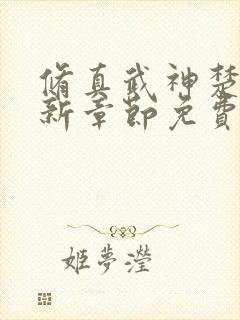 脩真武神楚
新章節免費
姬夢瀅